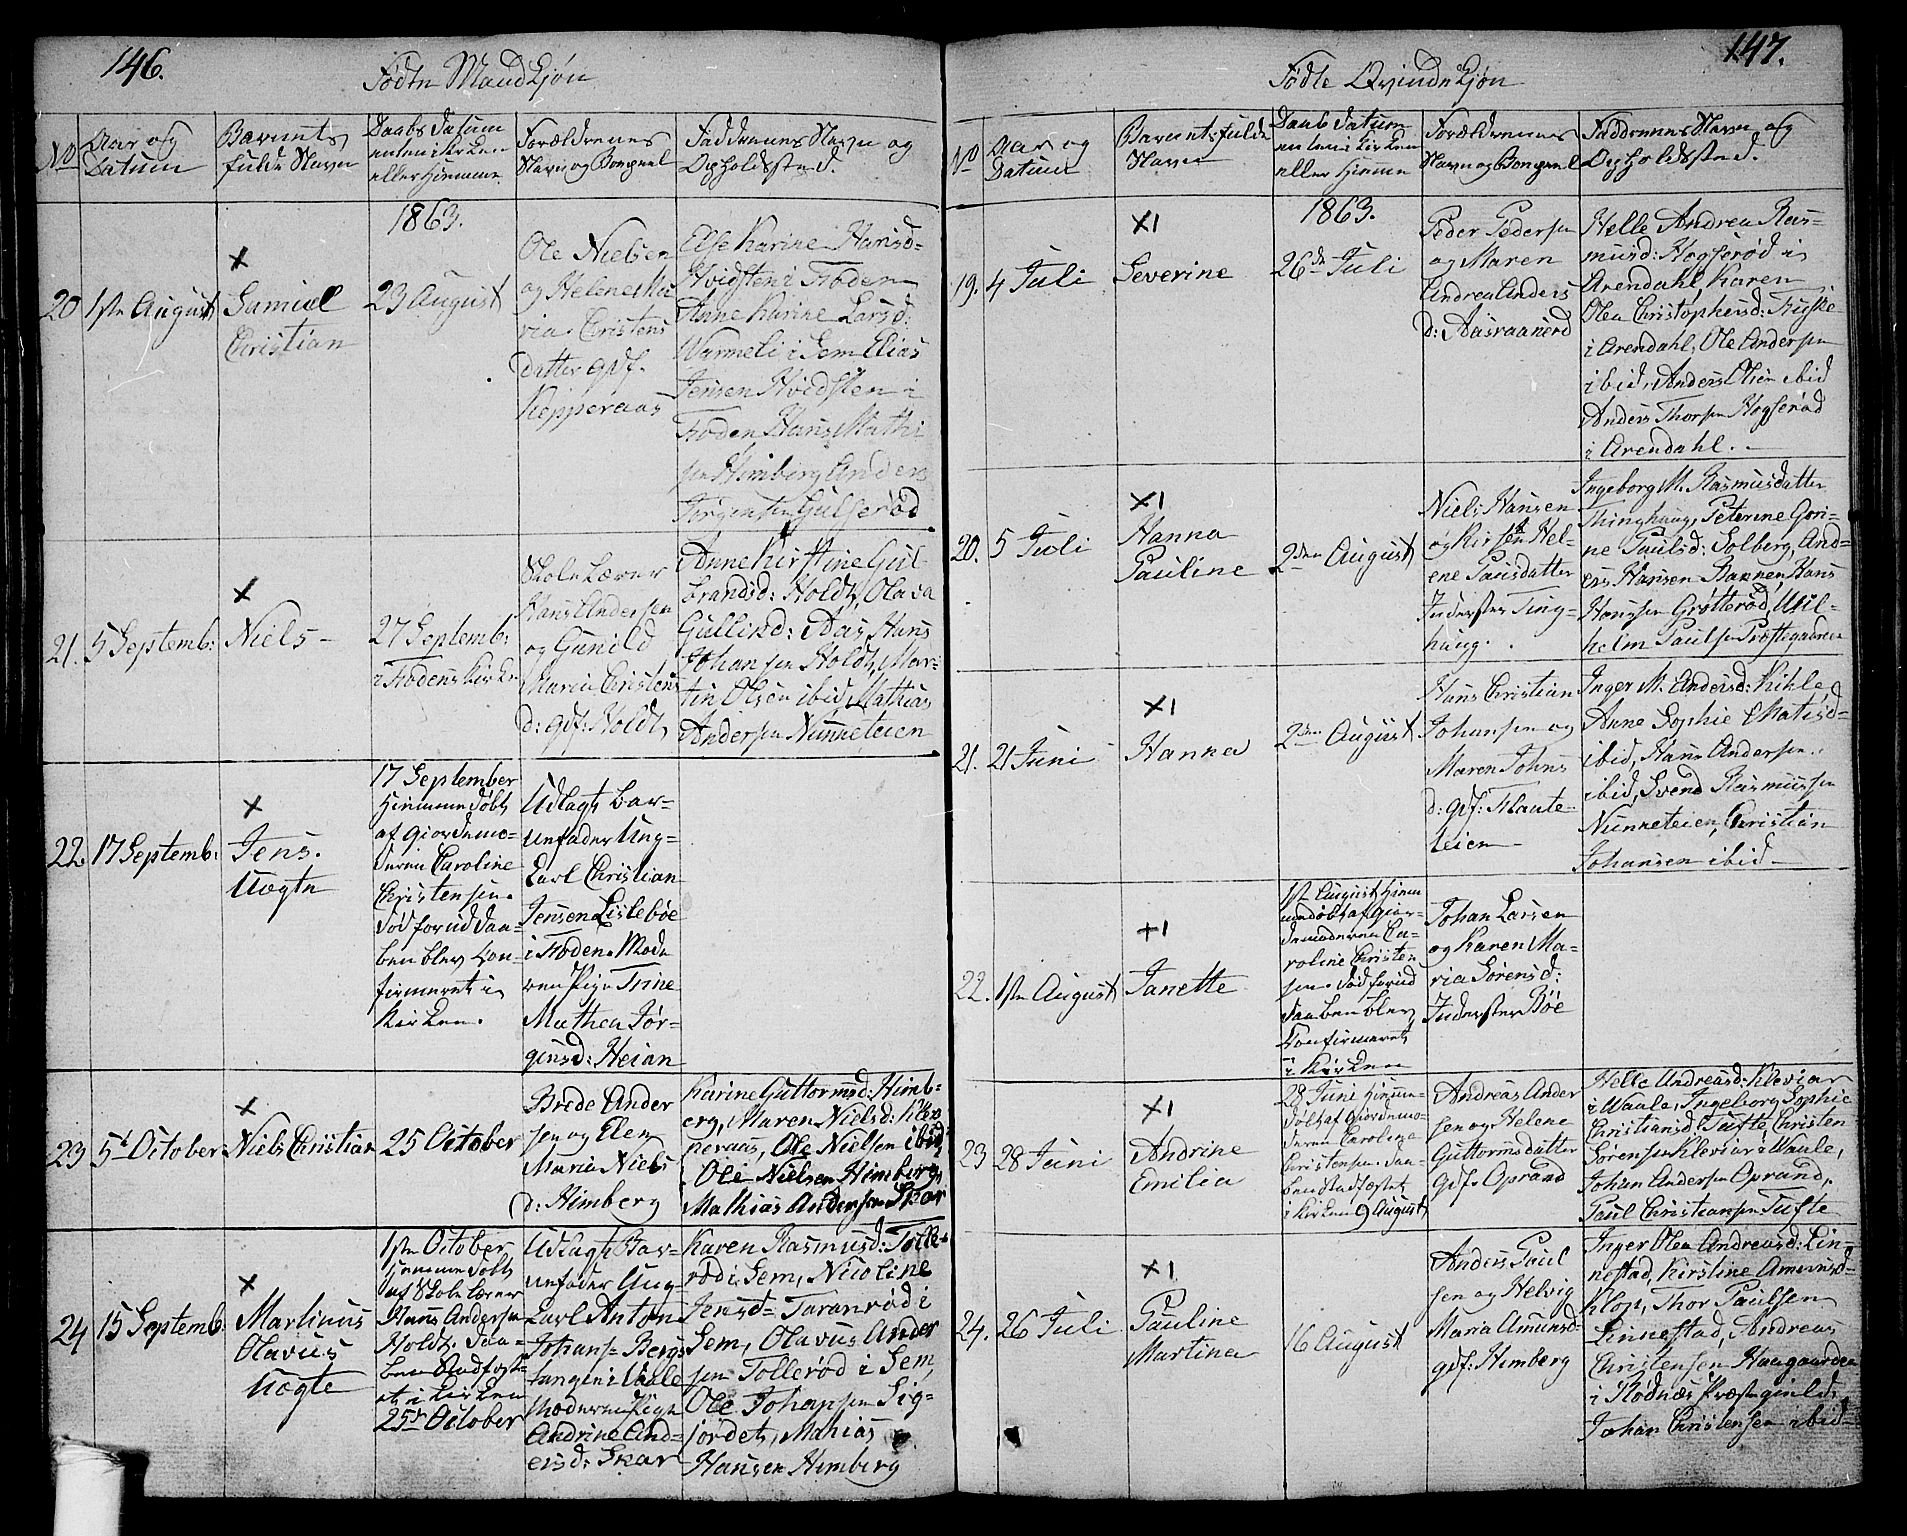 146.
Fødte Mandkjøn
No
Aar og
Datum
Barnets
fulde Navn
Daabs Datum
enten i Kirken
eller Hiemme
Forældrenes
Navn og Bopæl
Faddrenes Navn og
Opholdsted.
1863.
20
1ste August
×
Samuel
Christian
23 August
Ole Nielsen
og Helene Ma
ria Christens
datter gdf.
Kepperaas
Else Karine Hansd=
Hvidsten i Foden
Anne Karine Larsd:
Varmeli i Sem Elias
Jensen Hvidsten i
Foden Hans Mathi
sen Himberg Anders
Jørgensen Gulserød
21.
5 Septemb:
×
Niels
27 Septemb:
i Fodens Kirke
Skole Lærer
Hans Andersen
og Gunild
Maria Christens
d: gdf: Holdt
Anne Kirstine Gul
brandsd: Holdt, Olava
Gullixd: Aas, Hans
Johansen Holdt, Mar-
tin Olsen ibid, Mathias
Andersen Nunneteien
22.
17 Septemb:
×
Jens.
Uægte
17 September
Hiemmedøbt
af Giordemo-
deren Caroline
Christensen.
død forud Daa-
ben blev Con-
firmeret i
Kirken.
Udlagt Bar-
nefader Ung-
Carl Christian
Jensen Lislebøe
i Foden. Mode
ren Pige Trine
Mathea Jør-
gensd: Heian
23
5t October
×
Niels Christian
25 October
Brede Ander
sen og Elen
Maria Niels
d: Himberg
Karine Guttormsd: Himb-
erg, Maren Nielsd: Kep
peraas, Ole Nielsen ibid,
Ole Nielsen Himberg,
Mathias Andersen Skar
24
15 Septemb.
×
Martinus
Olavus
Uægte
1ste October
Hemmedøbt
af Skole Lærer
Hans Andersen
Holdt. Daa-
ben Stadfæst-
et i Kirken
25de October
Udlagt Bar-
nefader Ung-
Carl Anton
Johans- Bergs
tangen i Vaale
Moderen Pige
Andrine And=
ersd: Skar
Karen Rasmusd: Tolle-
rød i Sem, Nicoline
Jensd= Taranrød i
Sem, Olavus Ander
sen Tollerød i Sem,
Ole Johansen Sig-
jordet, Mathias
Hansen Himberg
147.
Fødte Qvindekjøn
No
Aar og
Datum
Barnets fulde
Navn
Daabs Datum
enten i Kirken
eller Hiemme
Forældrenes
Navn og Bopæl
Faddrenes Navn og
Opholdsted.
1863.
19.
4 Juli
×1
Severine
26de Juli
Peder Pedersen
og Maren
Andrea Anders
d: Aasraanerd
Helle Andrea Ras=
musd: Hogserød i
Arendahl Karen
Olea Christophersd: Fuske-
i Arendahl, Ole Andersen
ibid, Anders Olsen ibid
Anders Thorsen Hogserød
i Arendahl. -
20.
5 Juli
×1
Hanna
Pauline
2den August
Niels Hansen
og Kirsti Hel-
ene Paulsdatter
Inderster Ting-
houg.
Ingeborg M. Rasmusdatter
Thinghoug, Peterine Gori-
ne Paulsd: Solberg, And-
ers Hansen Bannen, Hans
Hansen Grøtterød, Wil-
helm Paulsen Præstegaarden
21.
21 Juni
×1
Hanna
2den August
Hans Christian
Johansen og
Maren Johns
d: gdf: Flaate-
teien
Inger M. Andersd: Kihle,
Anne Sophie Matisd-
ibid, Hans Andersen
ibid, Svend Rasmussen
Nunneteien, Christian
Johansen ibid
22.
1ste August
+1
Janette
1ste August Hiem
medøbt af Gior-
demoderen Ca-
roline Christen
sen. Død forud
Daaben blev
Confirmeret
i Kirken
Johan Larsen
og Karen Ma-
ria Sørensd:
Inderster Bøe
23
28 Juni
×1
Andrine
Emilia
28 Juni Hiemme-
døbt af Giordemo-
deren Caroline
Christensen. Daa-
ben stadfæstet
i Kirken 9 August
Andreas Ander
sen og Helene
Guttormsdatter
gdf. Oprand
Helle Andreasd: Kleviar
i Waale, Ingeborg Sophie
Christiansd Tufte, Christen
Sørensen Kleviar i Waale,
Johan Andersen Oprand,
Paul Christiansen Tufte
24.
26 Juli
×1
Pauline
Martina
16 August
Anders Paul
sen og Helvig
Maria Amunsd-
gdf: Himberg
Inger Olea Andreasd: Lin-
nestad, Kirstine Amunsd-
Klop, Thor Paulsen
Linnestad, Andreas
Christensen Haugaarden
i Rødnæs Præstegield,
Johan Christensen ibid-